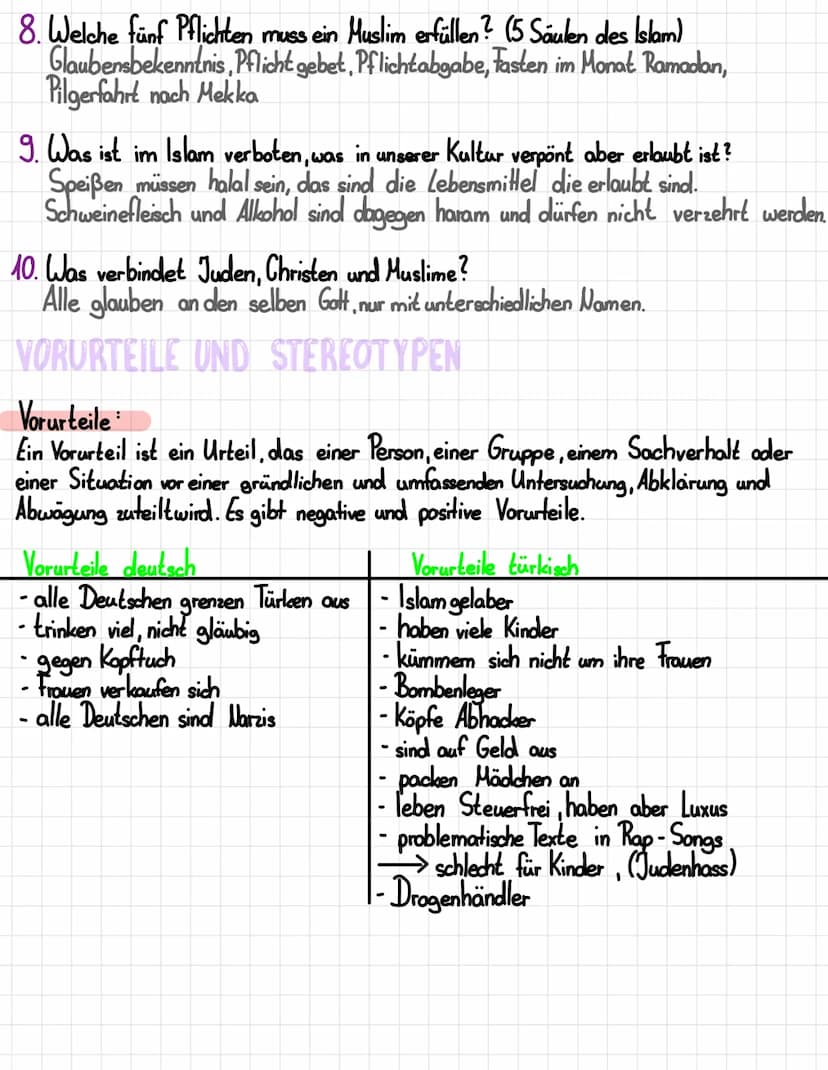 8. Welche fünf Pflichten muss ein Muslim erfüllen? (5 Säulen des Islam)
Glaubensbekenntnis, Pflichtgebet, Pflichtabgabe, Fasten im Monat Ramadan,
Pilgerfahrt nach Mekka
9. Was ist im Islam verboten, was in unserer Kultur verpönt aber erlaubt ist?
Speißen müssen halal sein, das sind die Lebensmittel die erlaubt sind.
Schweinefleisch und Alkohol sind dagegen haram und dürfen nicht verzehrt werden.
10. Was verbindet Juden, Christen und Muslime?
Alle glauben an den selben Gott, nur mit unterschiedlichen Namen.
VORURTEILE UND STEREOTYPEN
Vorurteile:
Ein Vorurteil ist ein Urteil, das einer Person, einer Gruppe, einem Sachverhalt oder
einer Situation vor einer gründlichen und umfassenden Untersuchung, Abklärung und
Abwägung zuteil wird. Es gibt negative und positive Vorurteile.
Vorurteile deutsch
- alle Deutschen grenzen Türken aus
- trinken viel, nicht gläubig
- gegen Kopftuch
- Frauen verkaufen sich
- alle Deutschen sind Narzis
Vorurteile türkisch
- Islam gelaber
- haben viele Kinder
- kümmern sich nicht um ihre Frauen
- Bombenleger
- Köpfe Abhacker
- sind auf Geld aus
- packen Mädchen an
- leben Steuerfrei, haben aber Luxus
- problematische Texte in Rap-Songs
→ schlecht für Kinder, (Judenhass)
- Drogenhändler